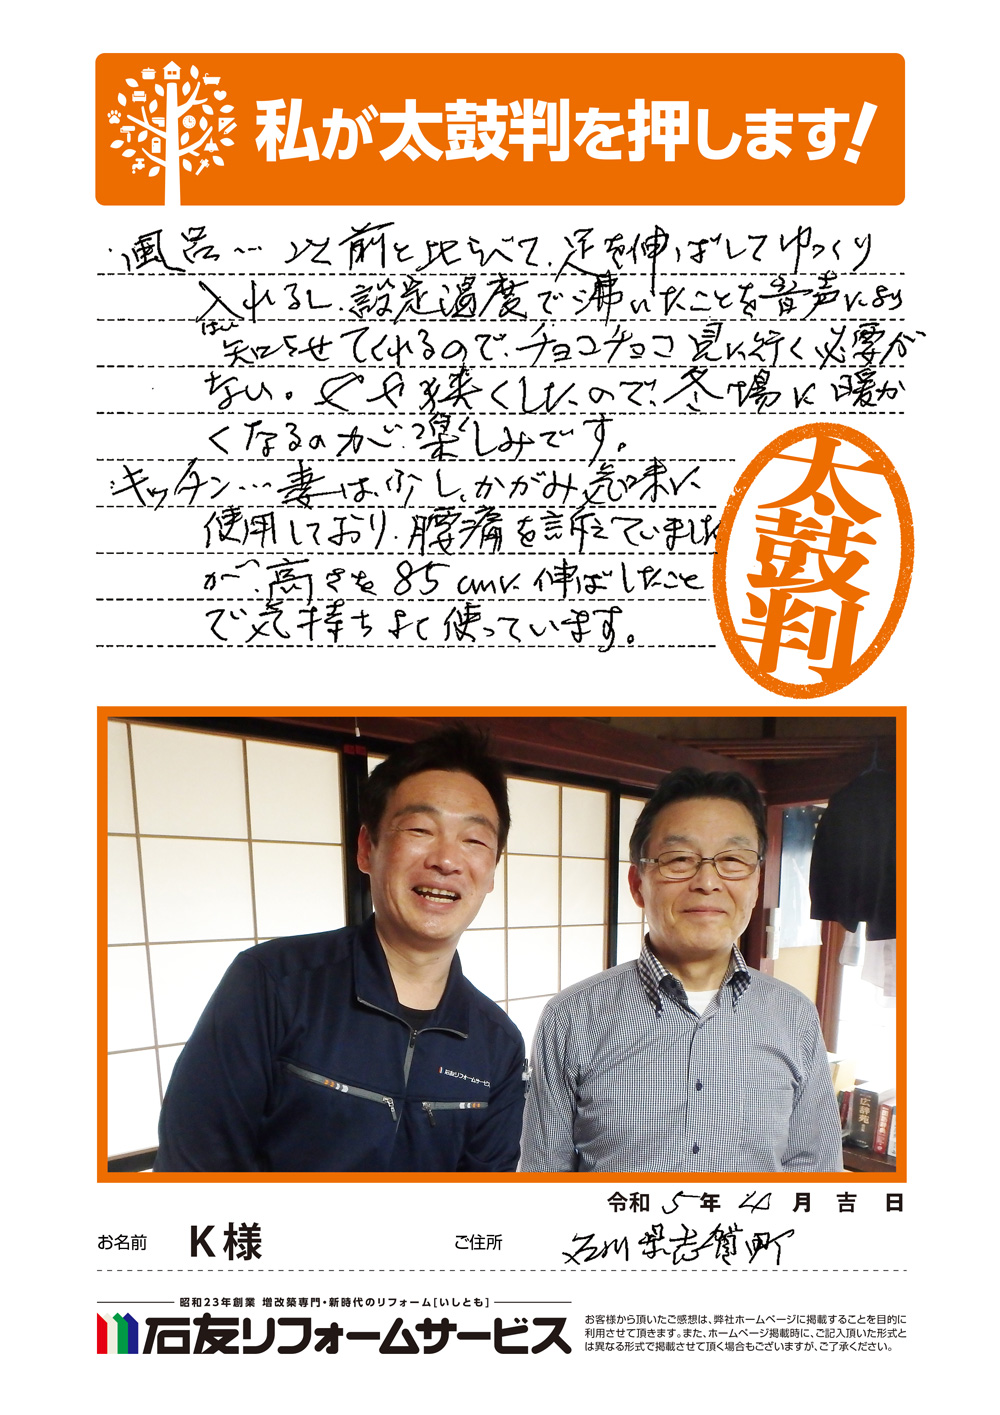 私が太鼓判を押します!
・風呂… 以前と比らべて、足を伸ばしてゆっくり
入れるし、設定温度で沸いたことを音声により
知らせてくれるので、チョコチョコ見に行く必要が
ない。やや狭くしたので、冬場に暖か
くなるのが、楽しみです。
・キッチン…妻は、少し、かがみ気味に
使用しており、腰痛を訴えていました
が、高さを85cmに伸ばしたこと
で気持ちよく使っています。
太鼓判
石友リフォームサービス
広辞苑
令和 5年 4月 吉 日
お名前 K様 ご住所 石川県志賀町
昭和23年創業 増改築専門・新時代のリフォーム[いしとも]
石友リフォームサービス
お客様から頂いたご感想は、弊社ホームページに掲載することを目的に
利用させて頂きます。また、ホームページ掲載時に、ご記入頂いた形式と
は異なる形式で掲載させて頂く場合もございますが、ご了承ください。